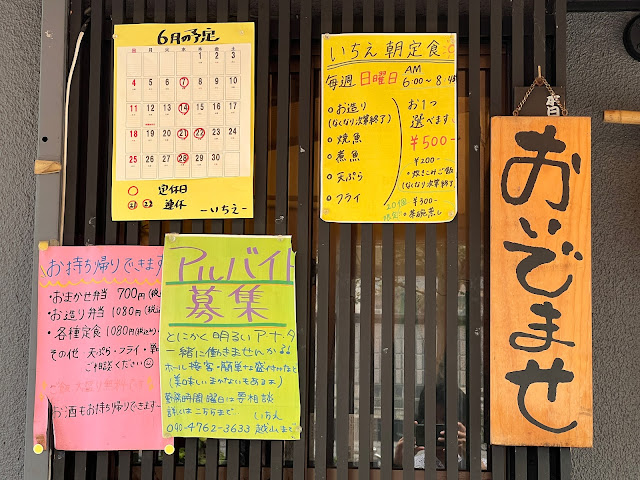 6月の予定
1 2 3
4 5 6 7 8 9 10
11 12 13 14 15 16 17
18 19 20 21 22 23 24
25 26 27 28 29 30
定休日
21 22 連休
ーいちえー
いちえ 朝定食
毎週 日曜日 AM 6:00〜8:45
○お造り
(なくなり次第終了)
○焼魚
○煮魚
○天ぷら
○フライ
お1つ
選べます
¥500-
¥200-
・炊きこみご飯
(なくなり次第終了)
20個 ¥300-
限定 ・茶碗蒸し
おいでませ
お持ち帰りできます
・おまかせ弁当 700円
・お造り弁当 1080円
・各種定食 1080円
その他・天ぷら・フライ・
ご相談ください
お酒もお持ち帰りできます
アルバイト
募集
とにかく明るいアナタ
一緒に働きませんか
ホール接客・簡単な盛付けなど
(美味しいまかないもあるよ)
勤務時間・曜日は要相談
詳しくはこちらまで いちえ
090-4762-3633 越山まで